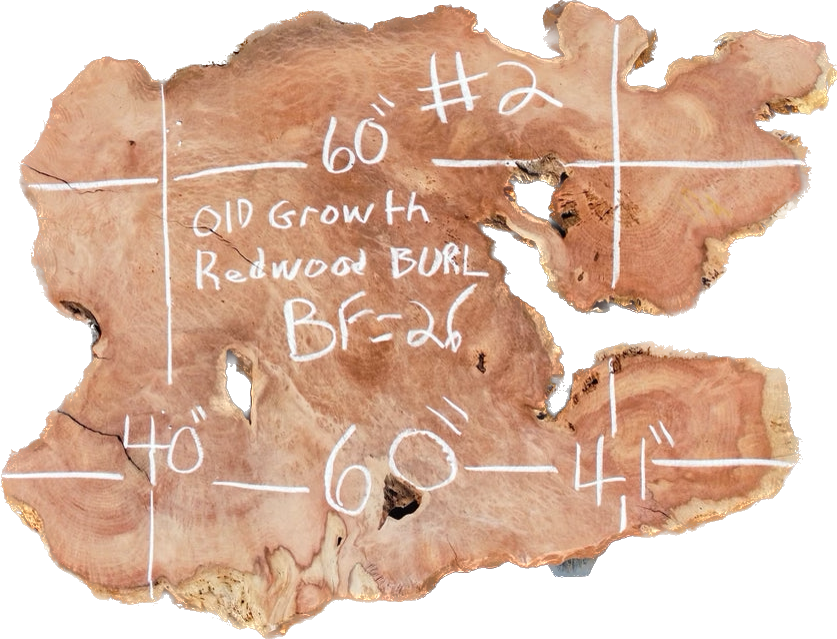 #2
60"
OlD Growth
Redwood BURL
BF=26
40"
60"
41"